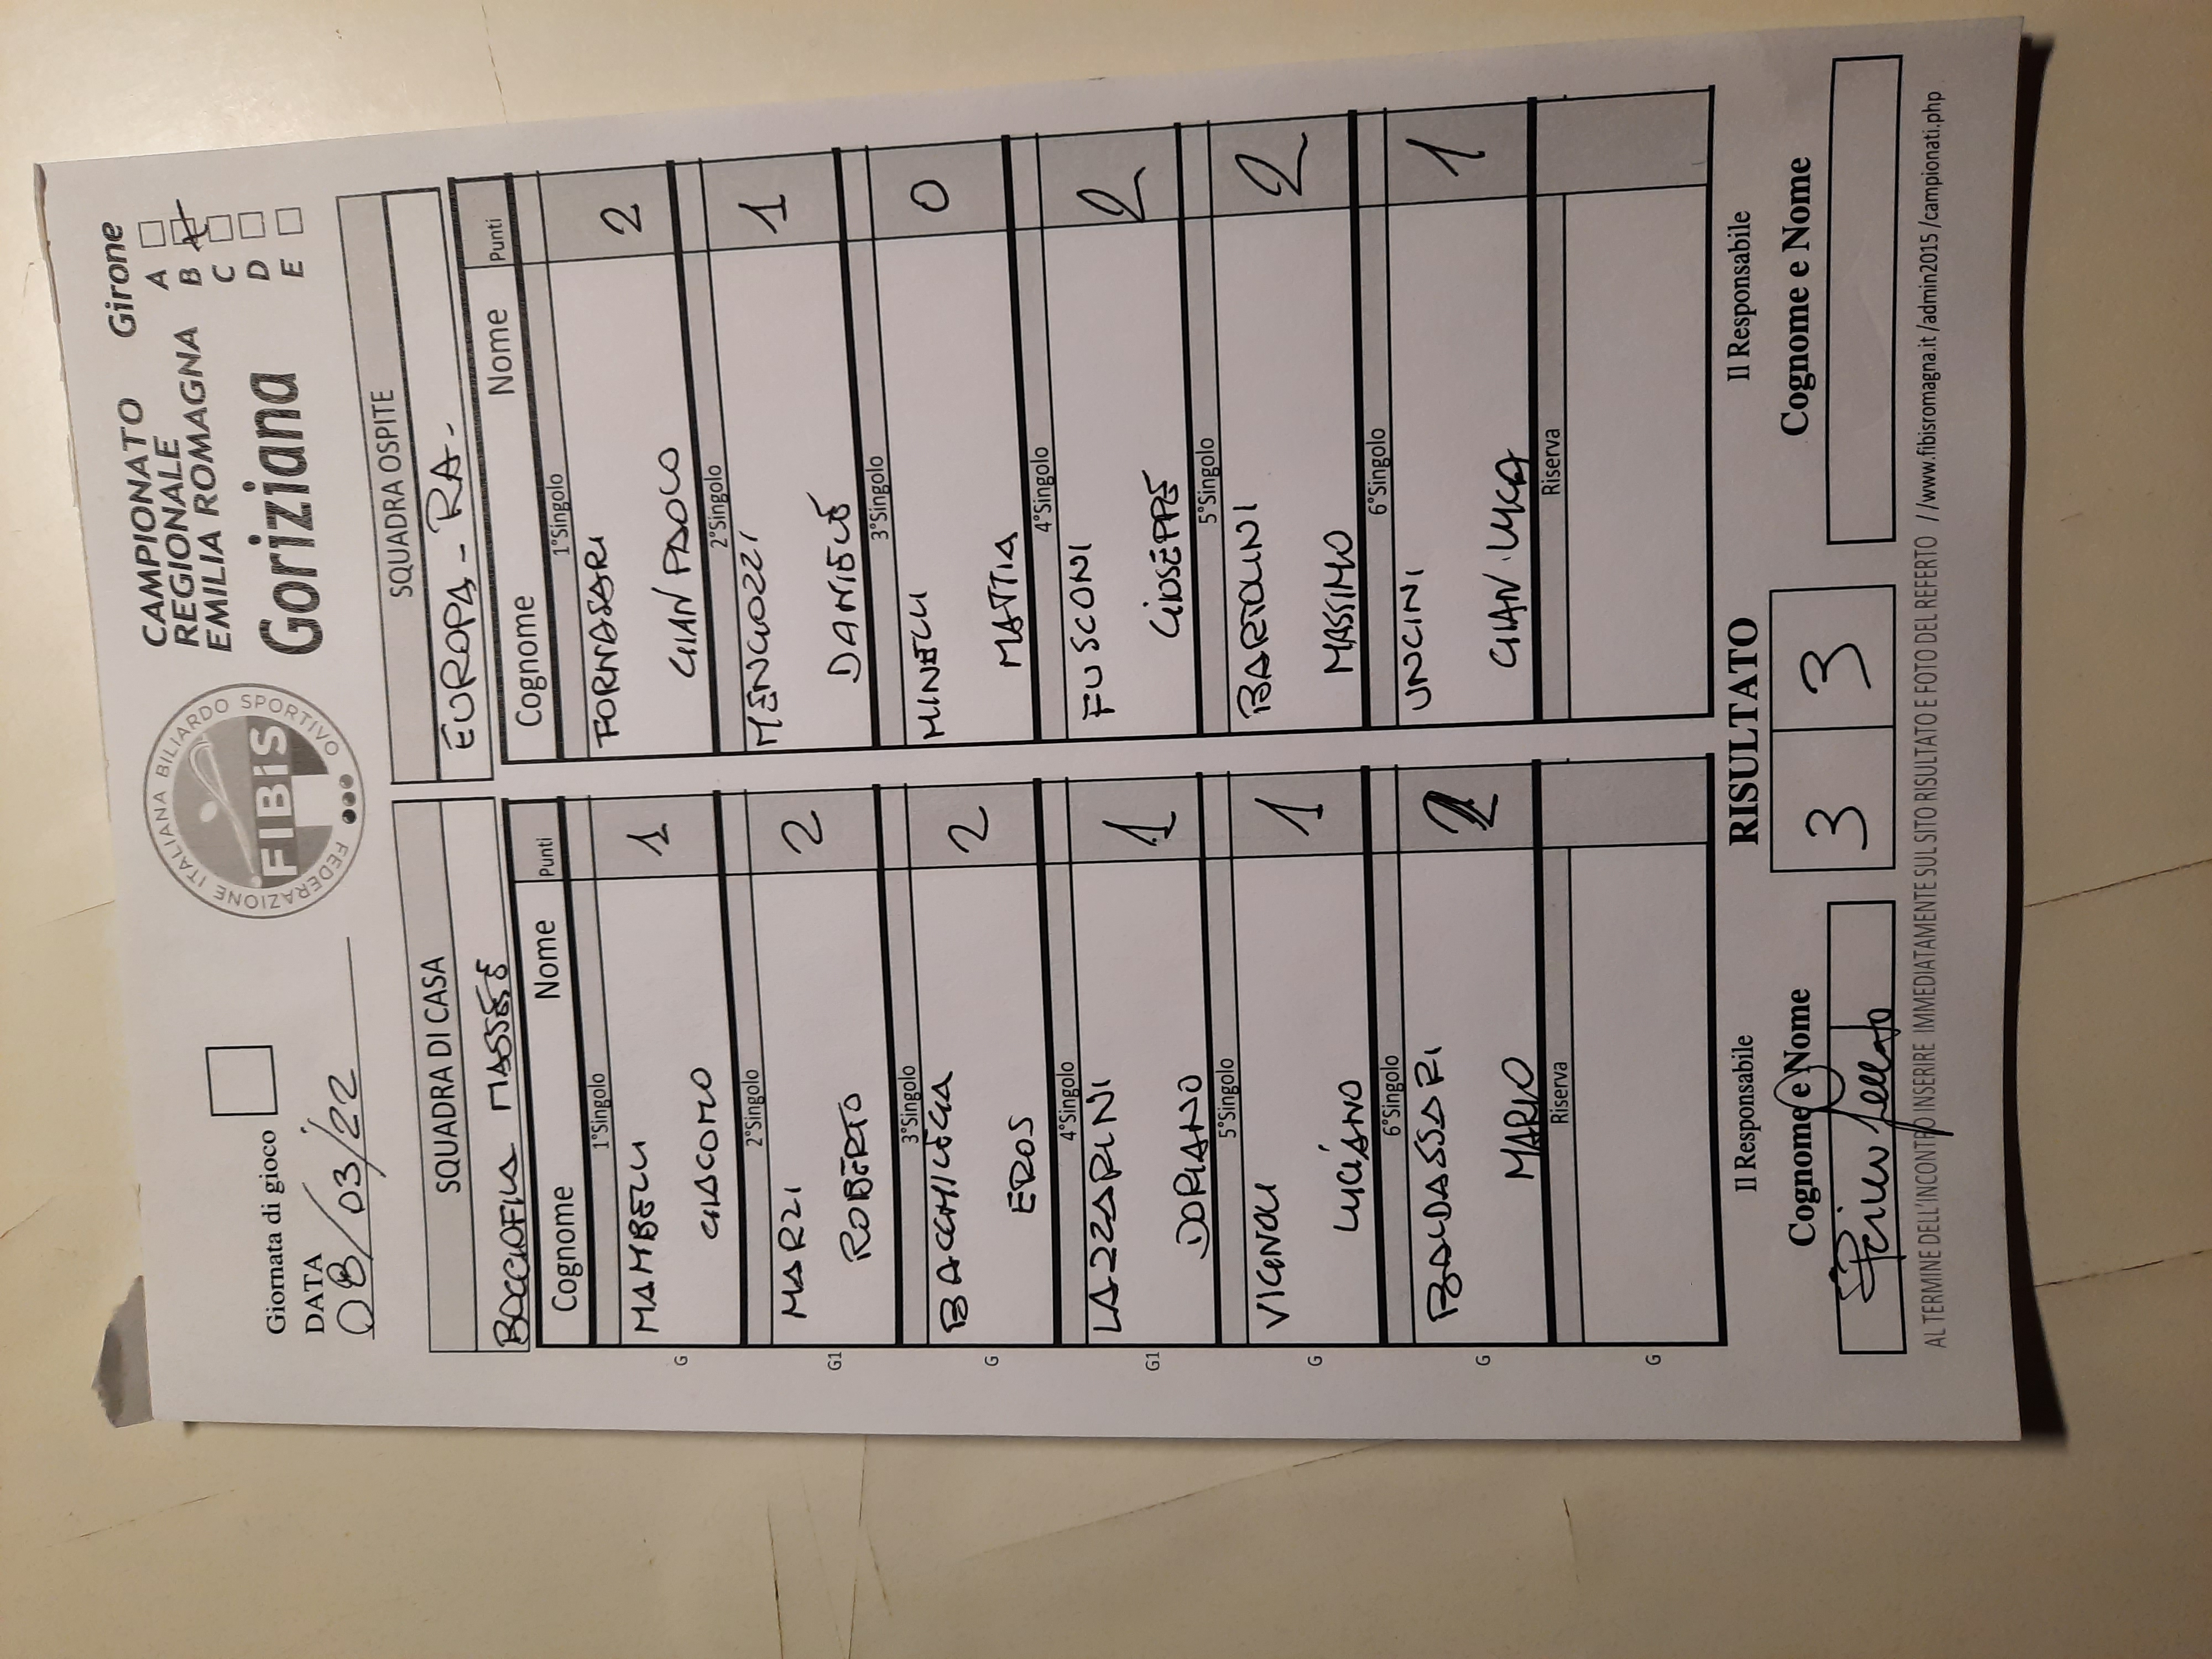 Giornata di gioco
DATA
08/03/22
FEDERAZIONE ITALIANA BILIARDO SPORTIVO
FIBiS
CAMPIONATO
REGIONALE
EMILIA ROMAGNA
Goriziana
Girone
A
B
C
D
E
SQUADRA DI CASA
BOCCIOFILA MASSESE
Cognome Nome Punti
1°Singolo
G MAMBELLI GIACOMO 1
2°Singolo
G1 MARZI ROBERTO 2
3°Singolo
G BACCHILEGA EROS 2
4°Singolo
G1 LAZZARINI DORIANO 1
5°Singolo
G VIGNOLI LUCIANO 1
6°Singolo
G BALDASSARI MARIO 2
Riserva
G
SQUADRA OSPITE
EUROPA - RA -
Cognome Nome Punti
1°Singolo
FORNASARI GIAN PAOLO 2
2°Singolo
MENGOZZI DANIELE 1
3°Singolo
MINELLI MATTIA 0
4°Singolo
FUSCONI GIUSEPPE 2
5°Singolo
BARTOLINI MASSIMO 2
6°Singolo
UNCINI GIAN LUCA 1
Riserva
Il Responsabile
Cognome e Nome
RISULTATO
3 3
Il Responsabile
Cognome e Nome
AL TERMINE DELL'INCONTRO INSERIRE IMMEDIATAMENTE SUL SITO RISULTATO E FOTO DEL REFERTO //www.fibisromagna.it /admin2015 /campionati.php